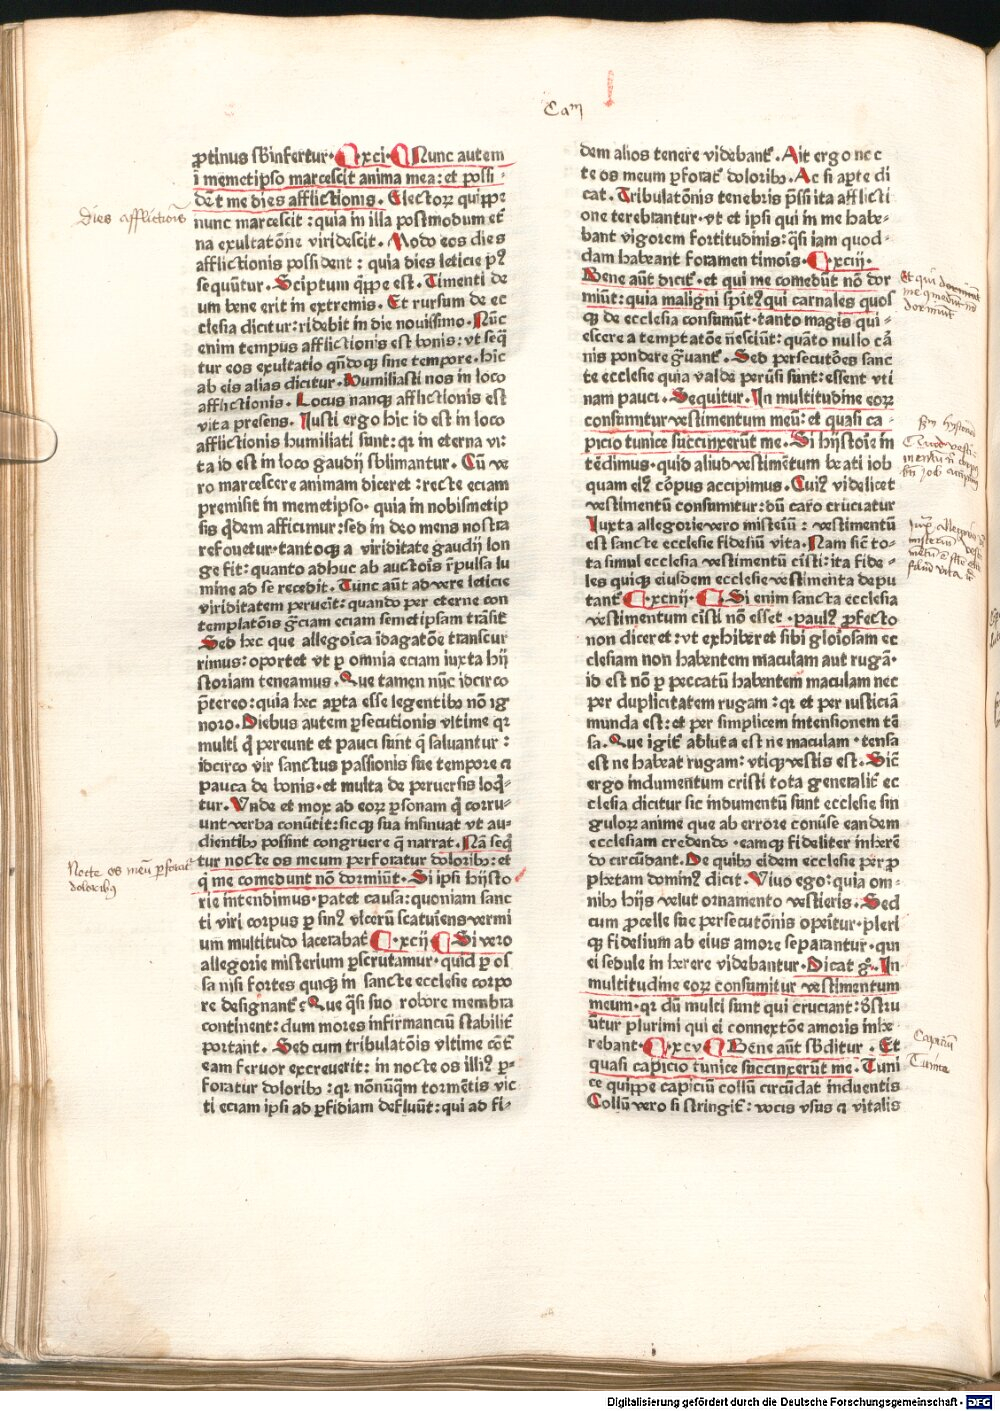 Cam
ꝓtinus sb̄infertur· ¶ ·xci· ¶ Nunc autem
ī memetipso marcescit anima mea: et possi-
dēt me dies afflictionis. Electoꝝ quippe
nunc marcescit: quia in illa postmodum et̄
na exultatōne viridescit. Modo eos dies
afflictionis possident: quia dies leticie pꝰ
sequūtur. Sciptum q̄ppe est. Timenti de
um bene erit in extremis. Et rursum de ec
clesia dicitur: ridebit in die nouissimo. Nūc
enim tempus afflictionis est bonis: vt seq̄
tur eos exultatio qn̄doqꝫ sine tempore. hic
ab eis alias dicitur. Humiliasti nos in loco
afflictionis. Locus nanqꝫ afflictionis est
vita presens. Justi ergo hic id est in loco
afflictionis humiliati sunt: qꝛ in eterna vi:
ta id est in loco gaudij sb̄limantur. Cū ve
ro marcescere animam diceret: recte eciam
premisit in memetipso· quia in nobismetip
sis q̄dem afficimur: sed in deo mens nostra
refouetur· tantoqꝫ a viriditate gaudij lon
ge fit: quanto adhuc ab auctoīs r̄pulsa lu
mine ad se recedit. Tunc aūt ad vere leticie
viriditatem peruēit: quando per eterne con
templatōis gr̄ciam eciam semetipsam trāsit
Sed hec que allegoīca īdagatōe transcur
rimus: oportet vt ꝑ omnia eciam iuxta hij
storiam teneamus. Que tamen nūc idcirco
p̄tereo: quia hec aꝑta esse legentibꝰ nō ig
noro. Diebus autem ꝑsecutionis vltime qꝛ
multi q̄ pereunt et pauci sunt q̄ saluantur:
idcirco vir sanctus passionis sue tempore a
pauca de bonis· et multa de peruersis loq̄-
tur. Vnde et mox ad eoꝝ ꝑsonam q̄ corru-
unt verba conūtit: sicqꝫ sua insinuat vt au-
dientibꝰ possint congruere q̄ narrat. Nā seq̄
tur nocte os meum perforatur doloribꝰ: et
q̄ me comedunt nō dormiūt. Si ipsi hijsto
rie intendimus· patet causa: quoniam sanc
ti viri corpus ꝑ sinꝰ vlcerū scatuiens vermi
um multitudo lacerabat ¶ ·xcij ¶ Si vero
allegorie misterium ꝑscrutamur· quid ꝑ os
sa nisi fortes quiqꝫ in sancte ecclesie corpo
re designant᷑? Que q̄si suo robore membra
continent: dum mores infirmanciū stabilit᷑
portant. Sed cum tribulatōis vltime cōt᷑
eam feruor excreuerit: in nocte os illiꝰ ꝑ-
foratur doloribꝰ: qꝛ nonūq̄m tormētis vic
ti eciam ipsi ad ꝑfidiam defluūt: qui ad fi-
dem alios tenere videbant᷑. Ait ergo noc
te os meum ꝑforat᷑ doloribꝰ. Ac si aꝑte di
cat. Tribulatōnis tenebris p̄ssi ita afflicti
one terebrantur· vt et ipsi qui in me habe-
bant vigorem fortitudinis: q̄si iam quod-
dam habeant foramen timoīs. ¶ ·xciij·
Bene aūt dicit᷑· et qui me comedūt nō dor
miūt: quia maligni spit᷑ꝰ qui carnales quos
qꝫ de ecclesia consumūt· tanto magis qui-
escere a temptatōe n̄esciūt: quāto nullo cā
nis pondere gr̄uant᷑. Sed persecutōes sanc
te ecclesie quia valde perūsi sunt: essent vti
nam pauci. Sequitur. In multitudine eoꝝ
consumitur vestimentum meū: et quasi ca-
picio tunice succinxerūt me. Si hijstoīe in
tēdimus· quid aliud vestimētum beati iob
quam eiꝰ cōpus accipimus. Cuiꝰ videlicet
vestimentū consumitur: dū caro cruciatur
Juxta allegorie vero misteiū: vestimentū
est sancte ecclesie fideliū vita. Nam sic̄ to-
ta simul ecclesia vestimentū cīsti: ita fide-
les quiqꝫ eiusdem ecclesie vestimenta depu
tant᷑ ¶ ·xcnij· ¶ Si enim sancta ecclesia
vestimentum cīsti nō esset· paulꝰ ꝓfecto
non diceret: vt exhiberet sibi gloīosam ec
clesiam non habentem maculam aut rugā·
id est nō ꝑ peccatū habentem maculam nec
per duplicitatem rugam: qꝛ et per iusticiā
munda est: et per simplicem intensionem tē
sa. Que igit᷑ abluta est ne maculam· tensa
est ne habeat rugam: vtiqꝫ vestis est. Sic̄
ergo indumentum cristi tota generalit᷑ ec
clesia dicitur sic indumentū sunt ecclesie sin
guloꝝ anime que ab errore conūse eandem
ecclesiam credendo· eamqꝫ fideliter inherē
do circūdant. De quibꝰ eidem ecclesie per ꝓ
phetam dominꝰ dicit. Viuo ego: quia om-
nibꝰ hijs velut ornamento vestieris. Sed
cum ꝓcelle sue persecutōnis opeītur· pleri
qꝫ fidelium ab eius amore separantur· qui
ei sedule inherere videbantur. Dicat gͦ. In
multitudine eoꝝ consumitur vestimentum
meum· qꝛ dū multi sunt qui cruciant: ꝺstru
ūtur plurimi qui ei connextōe amoris inhe
rebant· ¶ ·xcv ¶ Bene aūt sb̄ditur. Et
quasi capicio tunice succinxerūt me. Tuni
ce quippe capiciū collū circūdat induentis
Collū vero si stringit᷑: vocis vsus a vitalis
Dies afflictiōis
Nocte os meū ꝑforat᷑
doloribꝰ
Et qui dormiūt
me cōmedūt nō
dormiūt
Capiciū
Tunice
Digitalisierung gefördert durch die Deutsche Forschungsgemeinschaft · DFG